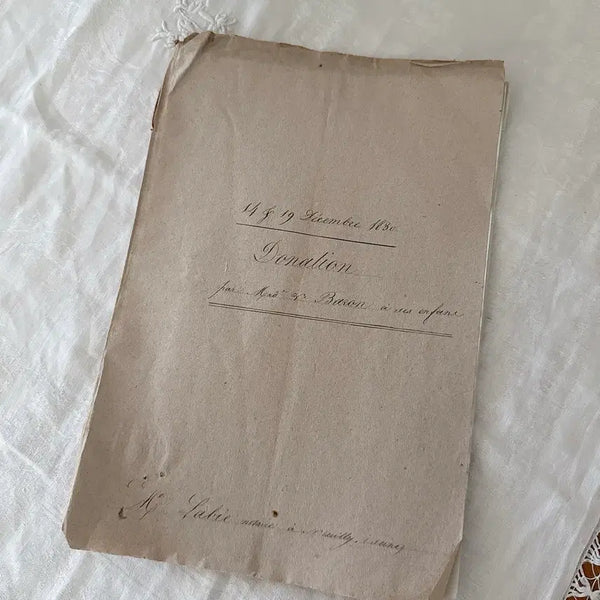 14 & 19 Décembre 1830
Donation
par Mad.e Ve Baron à ses enfans
Me Labie notaire à Neuilly